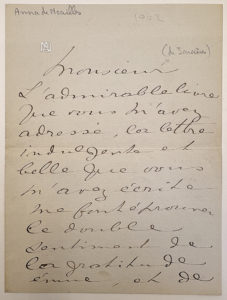 Anna de Noailles
1902
Monsieur
L'admirable livre
que vous m'avez
adressé, la lettre
indulgente et
belle que vous
m'avez écrite
me font éprouver
le double
sentiment de
la gratitude
émue, et de